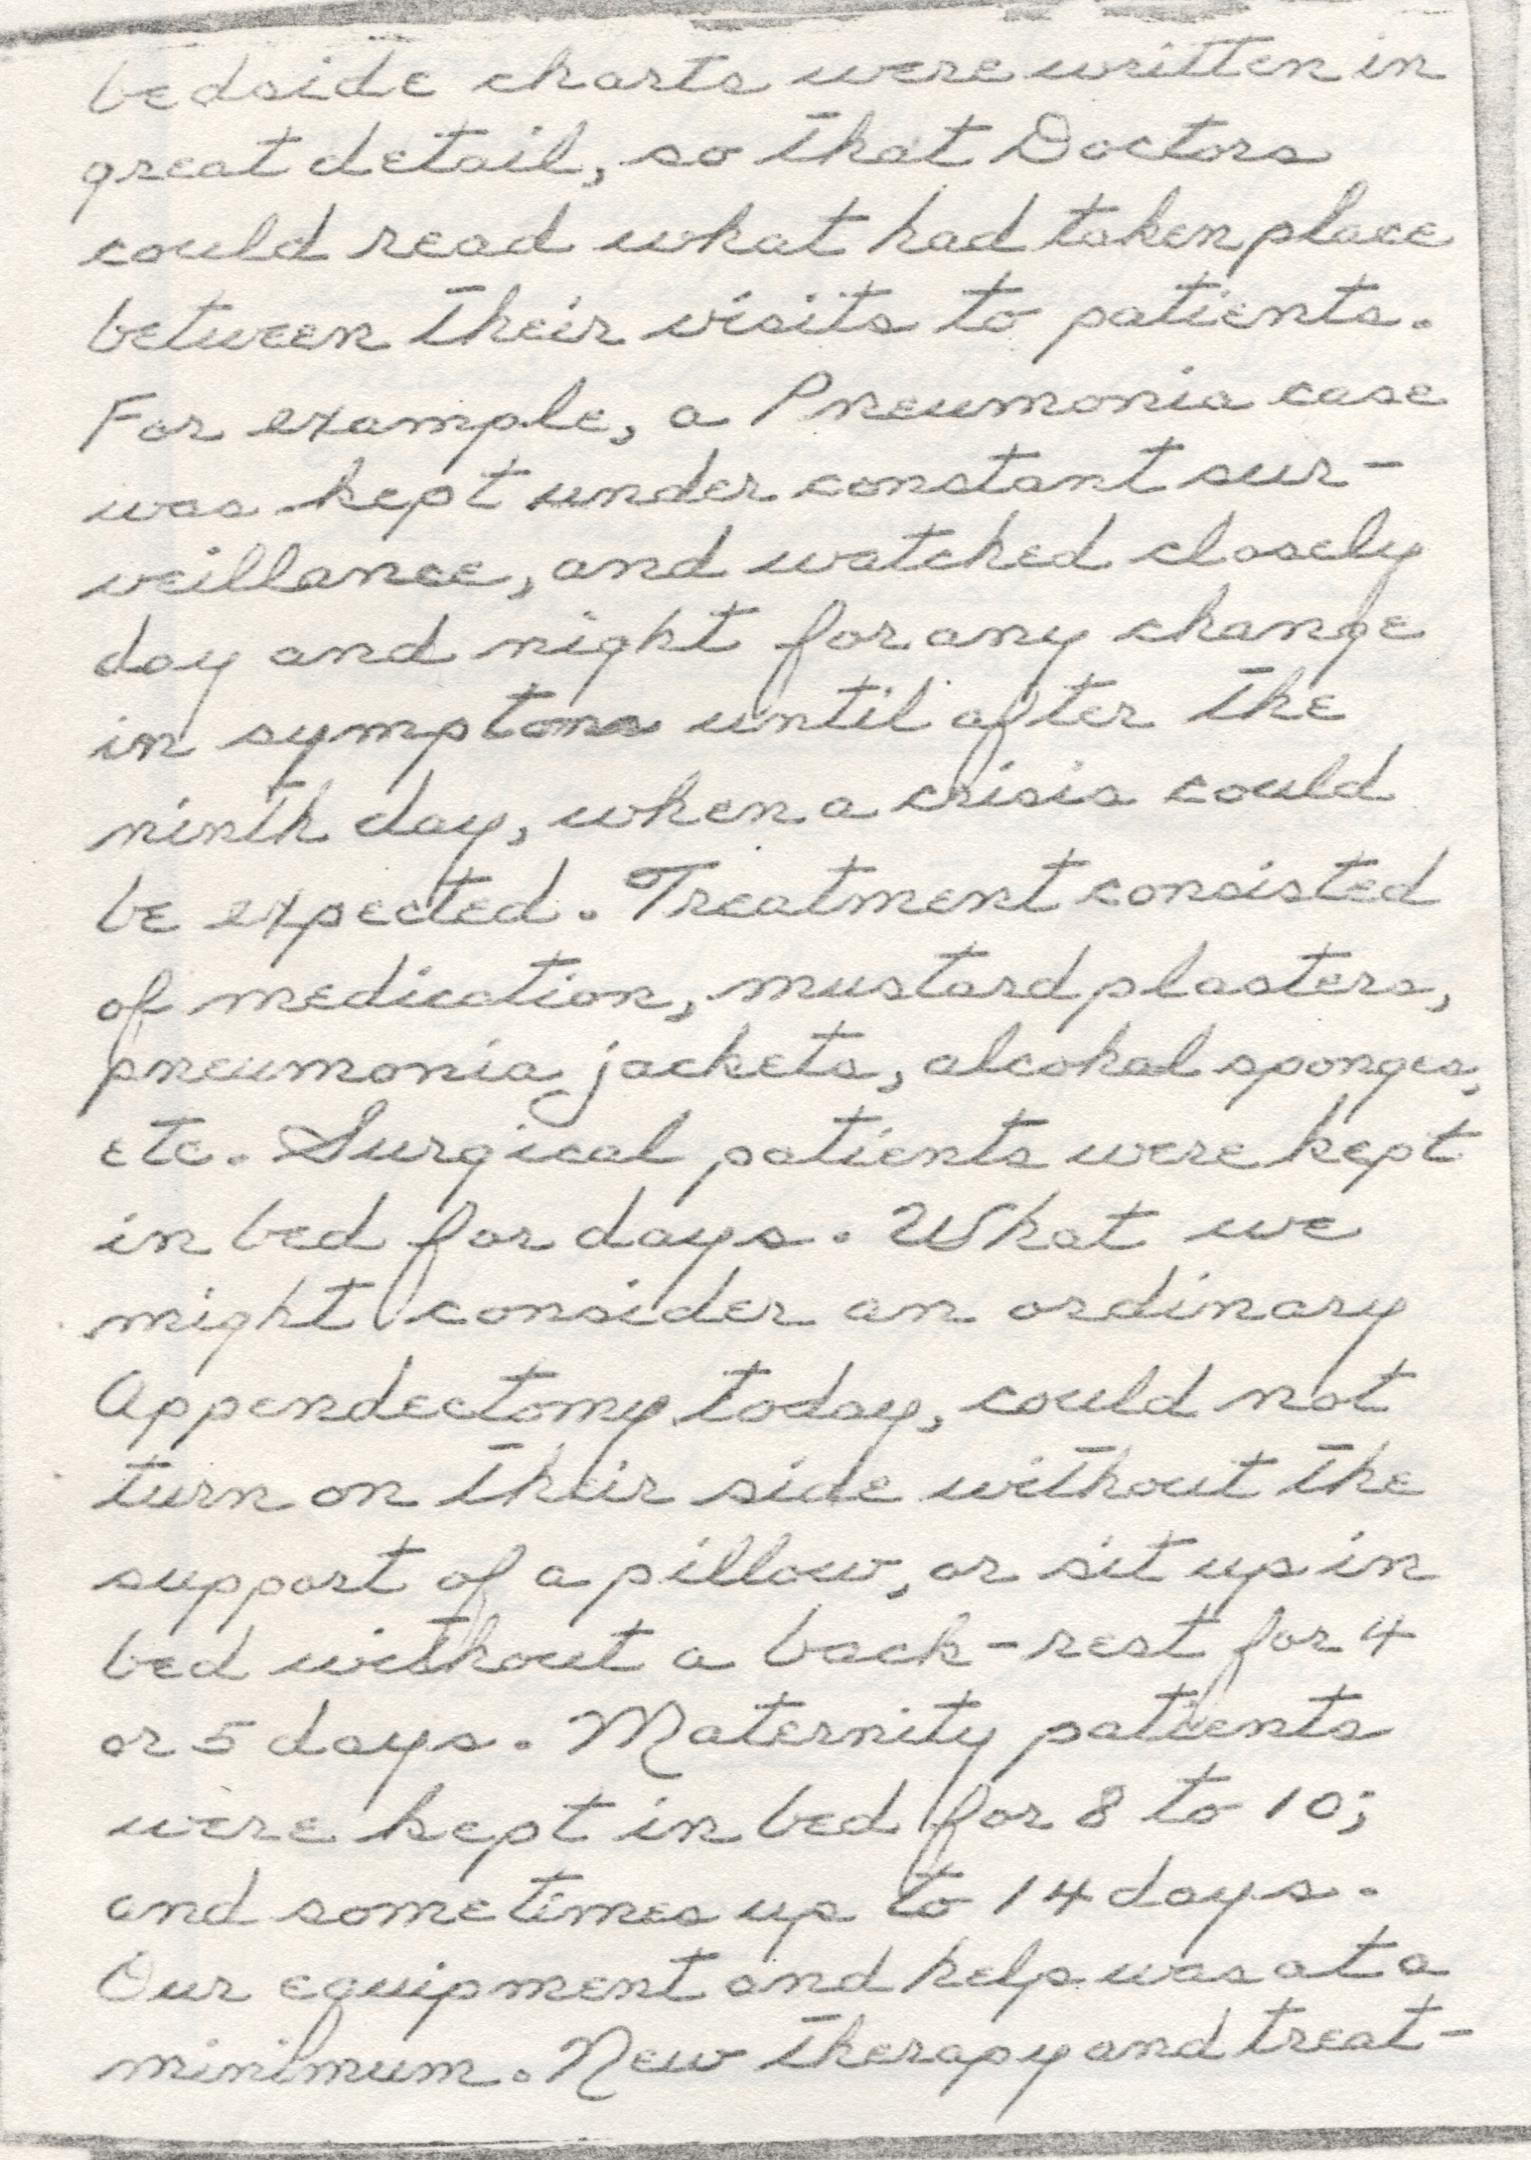 bedside charts were written in
great detail, so that Doctors
could read what had taken place
between their visits to patients.
For example, a Pneumonia case
was kept under constant sur-
veillance, and watched closely
day and night for any change
in symptoms until after the
ninth day, when a crisis could
be expected. Treatment consisted
of medication, mustard plasters,
pneumonia jackets, alcohal sponges,
etc. Surgical patients were kept
in bed for days. What we
might consider an ordinary
Appendectomy today, could not
turn on their side without the
support of a pillow, or sit up in
bed without a back-rest for 4
or 5 days. Maternity patients
were kept in bed for 8 to 10;
and sometimes up to 14 days.
Our equipment and help was at a
minimum. New therapy and treat-